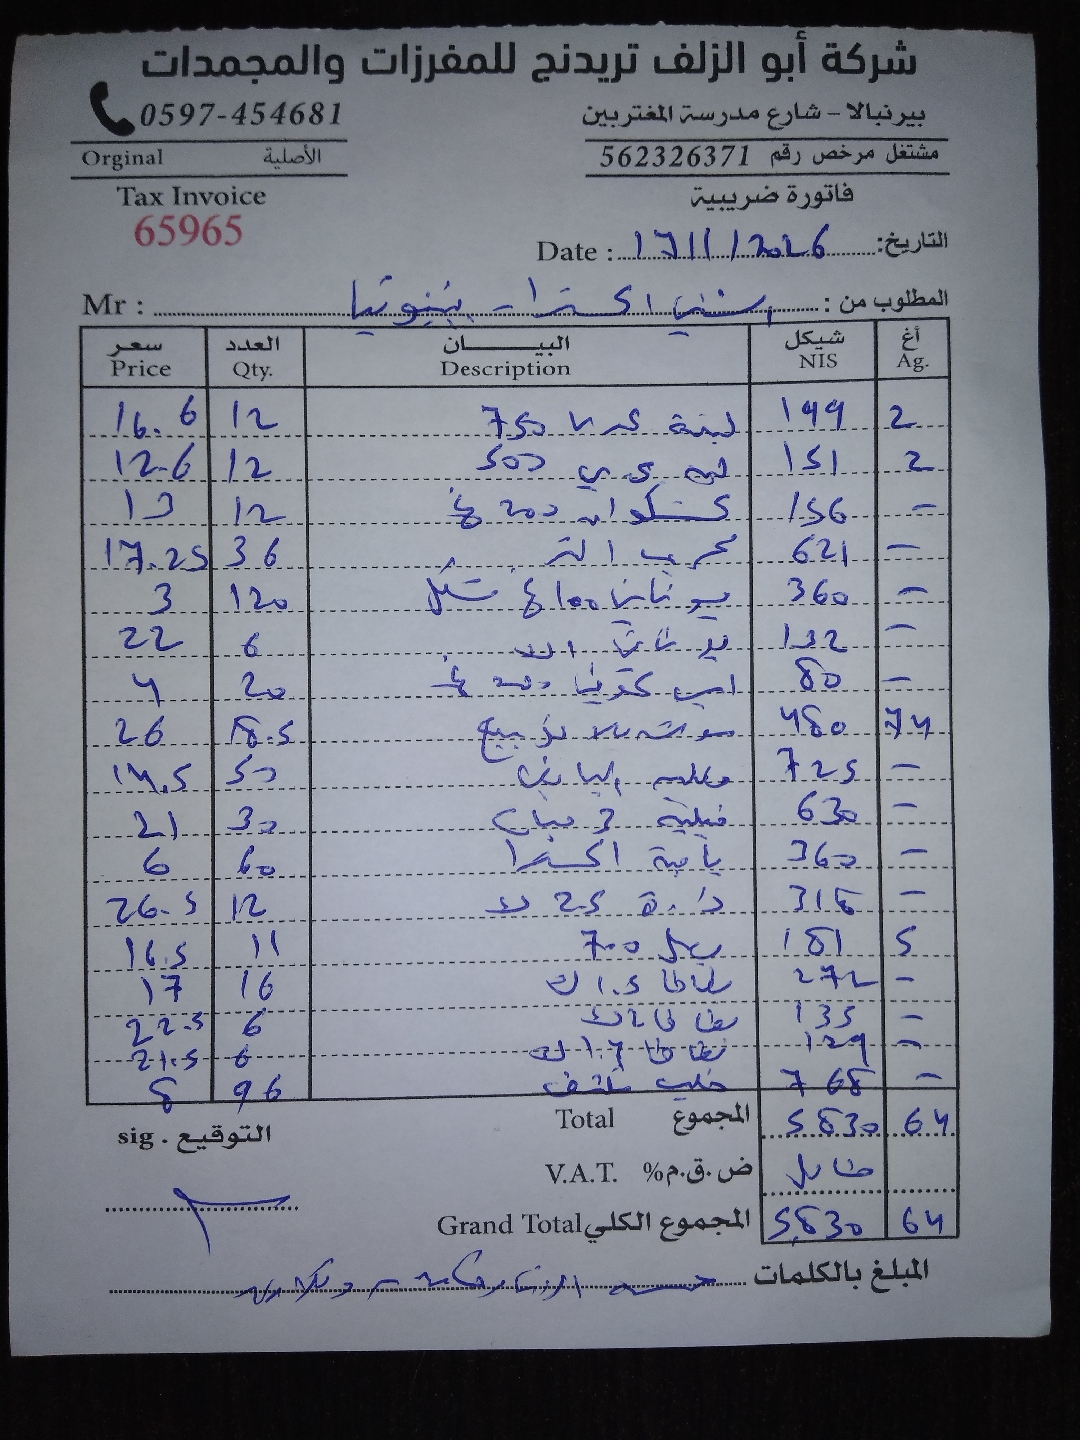 شركة أبو الزلف تريدنج للمفرزات والمجمدات
بيرنبالا - شارع مدرسة المغتربين 0597-454681
مشتغل مرخص رقم 562326371 الأصلية Orginal
فاتورة ضريبية Tax Invoice
65965
التاريخ: 17/1/2026 Date :
المطلوب من : اكسترا - Mr :
أغ Ag. شيكل NIS البيــــان Description العدد Qty. سعر Price
2 199 لبنة 750 12 16.6
2 151 500 12 12.6
- 156 12 13
- 621 36 17.25
- 360 100 غ 120 3
- 132 6 22
- 80 20 4
74 480 18.5 26
- 725 50 14.5
- 630 فيليه 30 21
- 360 بامية اكسترا 60 6
- 318 ذرة 2.5 ك 12 26.5
5 181 700 11 16.5
- 272 بطاطا 1.5 ك 16 17
- 135 بطاطا 2 ك 6 22.5
- 129 بطاطا 1.7 ك 6 21.5
- 768 حليب 96 8
64 5830 المجموع Total
شامل ض.ق.م% V.A.T.
64 5830 المجموع الكلي Grand Total
التوقيع . sig
المبلغ بالكلمات خمسة